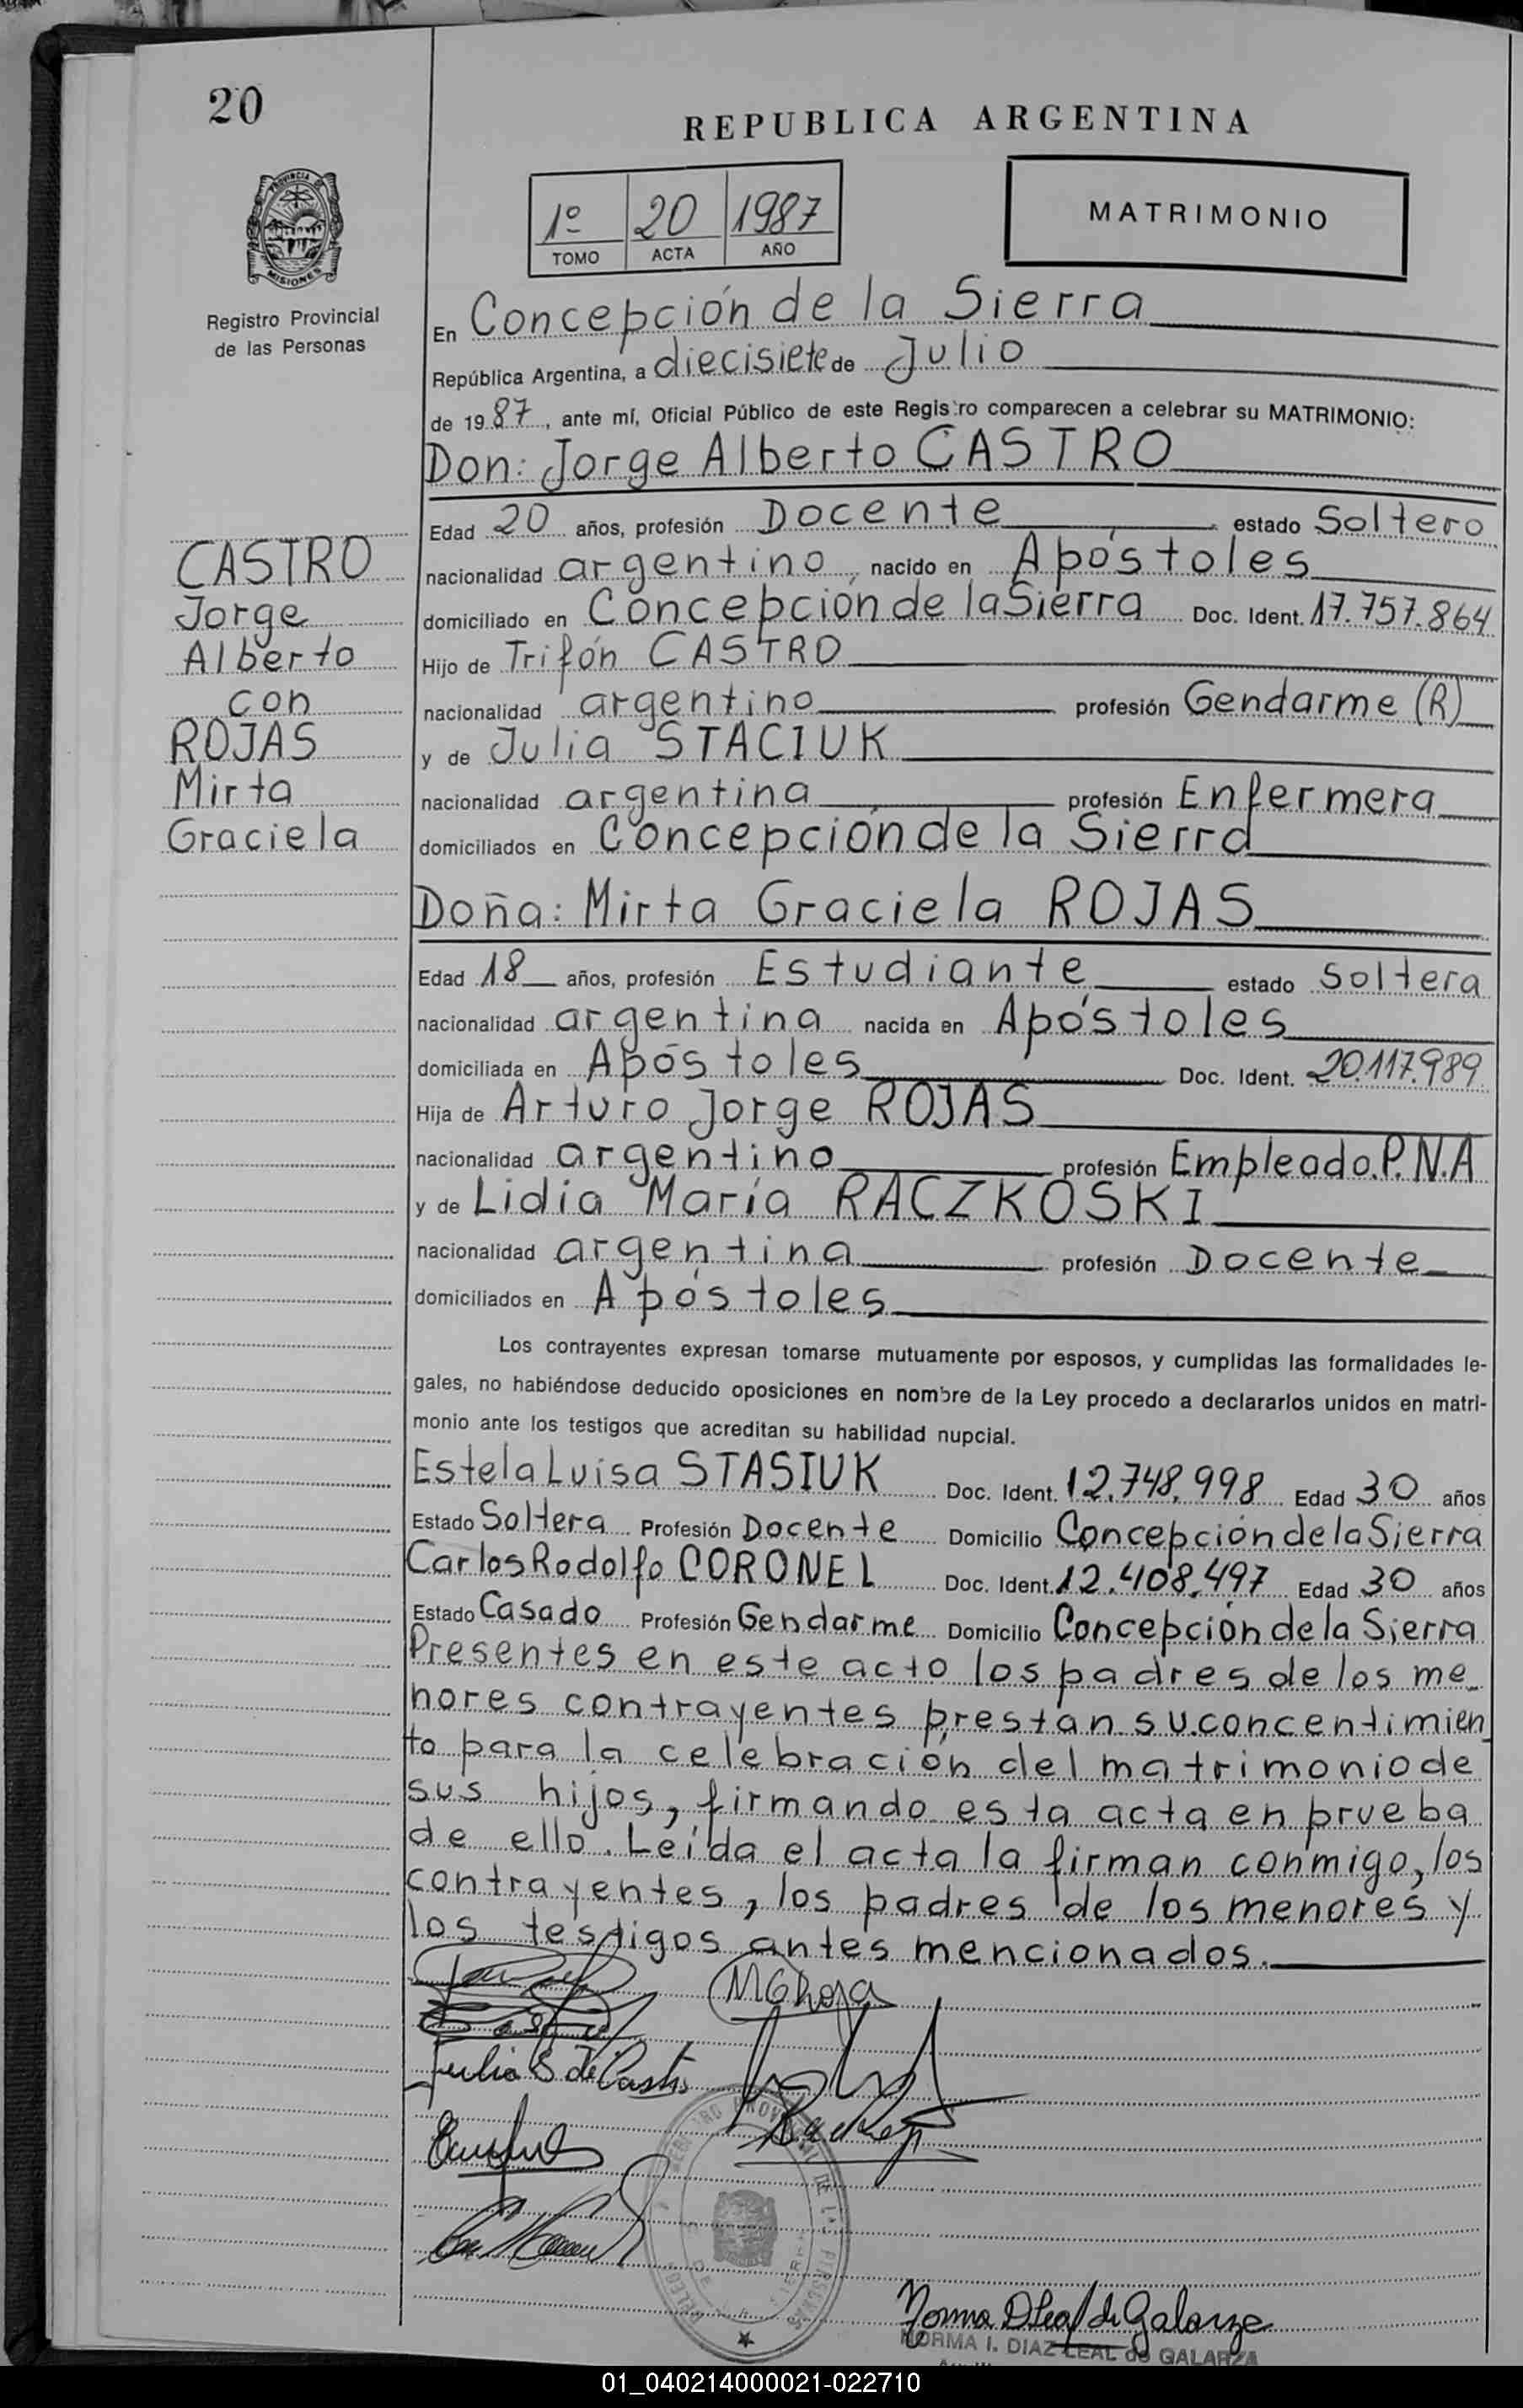 20
REPUBLICA ARGENTINA
PROVINCIA DE
MISIONES
Registro Provincial
de las Personas
1º 20 1987
TOMO ACTA AÑO
MATRIMONIO
En Concepción de la Sierra
República Argentina, a diecisiete de Julio
de 1987, ante mí, Oficial Público de este Registro comparecen a celebrar su MATRIMONIO:
Don: Jorge Alberto CASTRO
Edad 20 años, profesión Docente estado Soltero
nacionalidad argentino, nacido en Apóstoles
domiciliado en Concepción de la Sierra Doc. Ident. 17.757.864
Hijo de Trifón CASTRO
nacionalidad argentino profesión Gendarme (R)
y de Julia STACIUK
nacionalidad argentina profesión Enfermera
domiciliados en Concepción de la Sierra
CASTRO
Jorge
Alberto
con
ROJAS
Mirta
Graciela
Doña: Mirta Graciela ROJAS
Edad 18 años, profesión Estudiante estado Soltera
nacionalidad argentina nacida en Apóstoles
domiciliada en Apóstoles Doc. Ident. 20.117.989
Hija de Arturo Jorge ROJAS
nacionalidad argentino profesión Empleado.P.N.A
y de Lidia María RACZKOSKI
nacionalidad argentina profesión Docente
domiciliados en Apóstoles
Los contrayentes expresan tomarse mutuamente por esposos, y cumplidas las formalidades le-
gales, no habiéndose deducido oposiciones en nombre de la Ley procedo a declararlos unidos en matri-
monio ante los testigos que acreditan su habilidad nupcial.
Estela Luisa STASIUK Doc. Ident. 12.748.998 Edad 30 años
Estado Soltera Profesión Docente Domicilio Concepción de la Sierra
Carlos Rodolfo CORONEL Doc. Ident. 12.408.497 Edad 30 años
Estado Casado Profesión Gendarme Domicilio Concepción de la Sierra
Presentes en este acto los padres de los me_
nores contrayentes prestan su concentimien_
to para la celebración del matrimonio de
sus hijos, firmando esta acta en prueba
de ello. Leída el acta la firman conmigo, los
contrayentes, los padres de los menores y
los testigos antes mencionados.
MGRojas
Julia S de Castro
Norma D Leal de Galarza
NORMA I. DIAZ LEAL de GALARZA
01_040214000021-022710